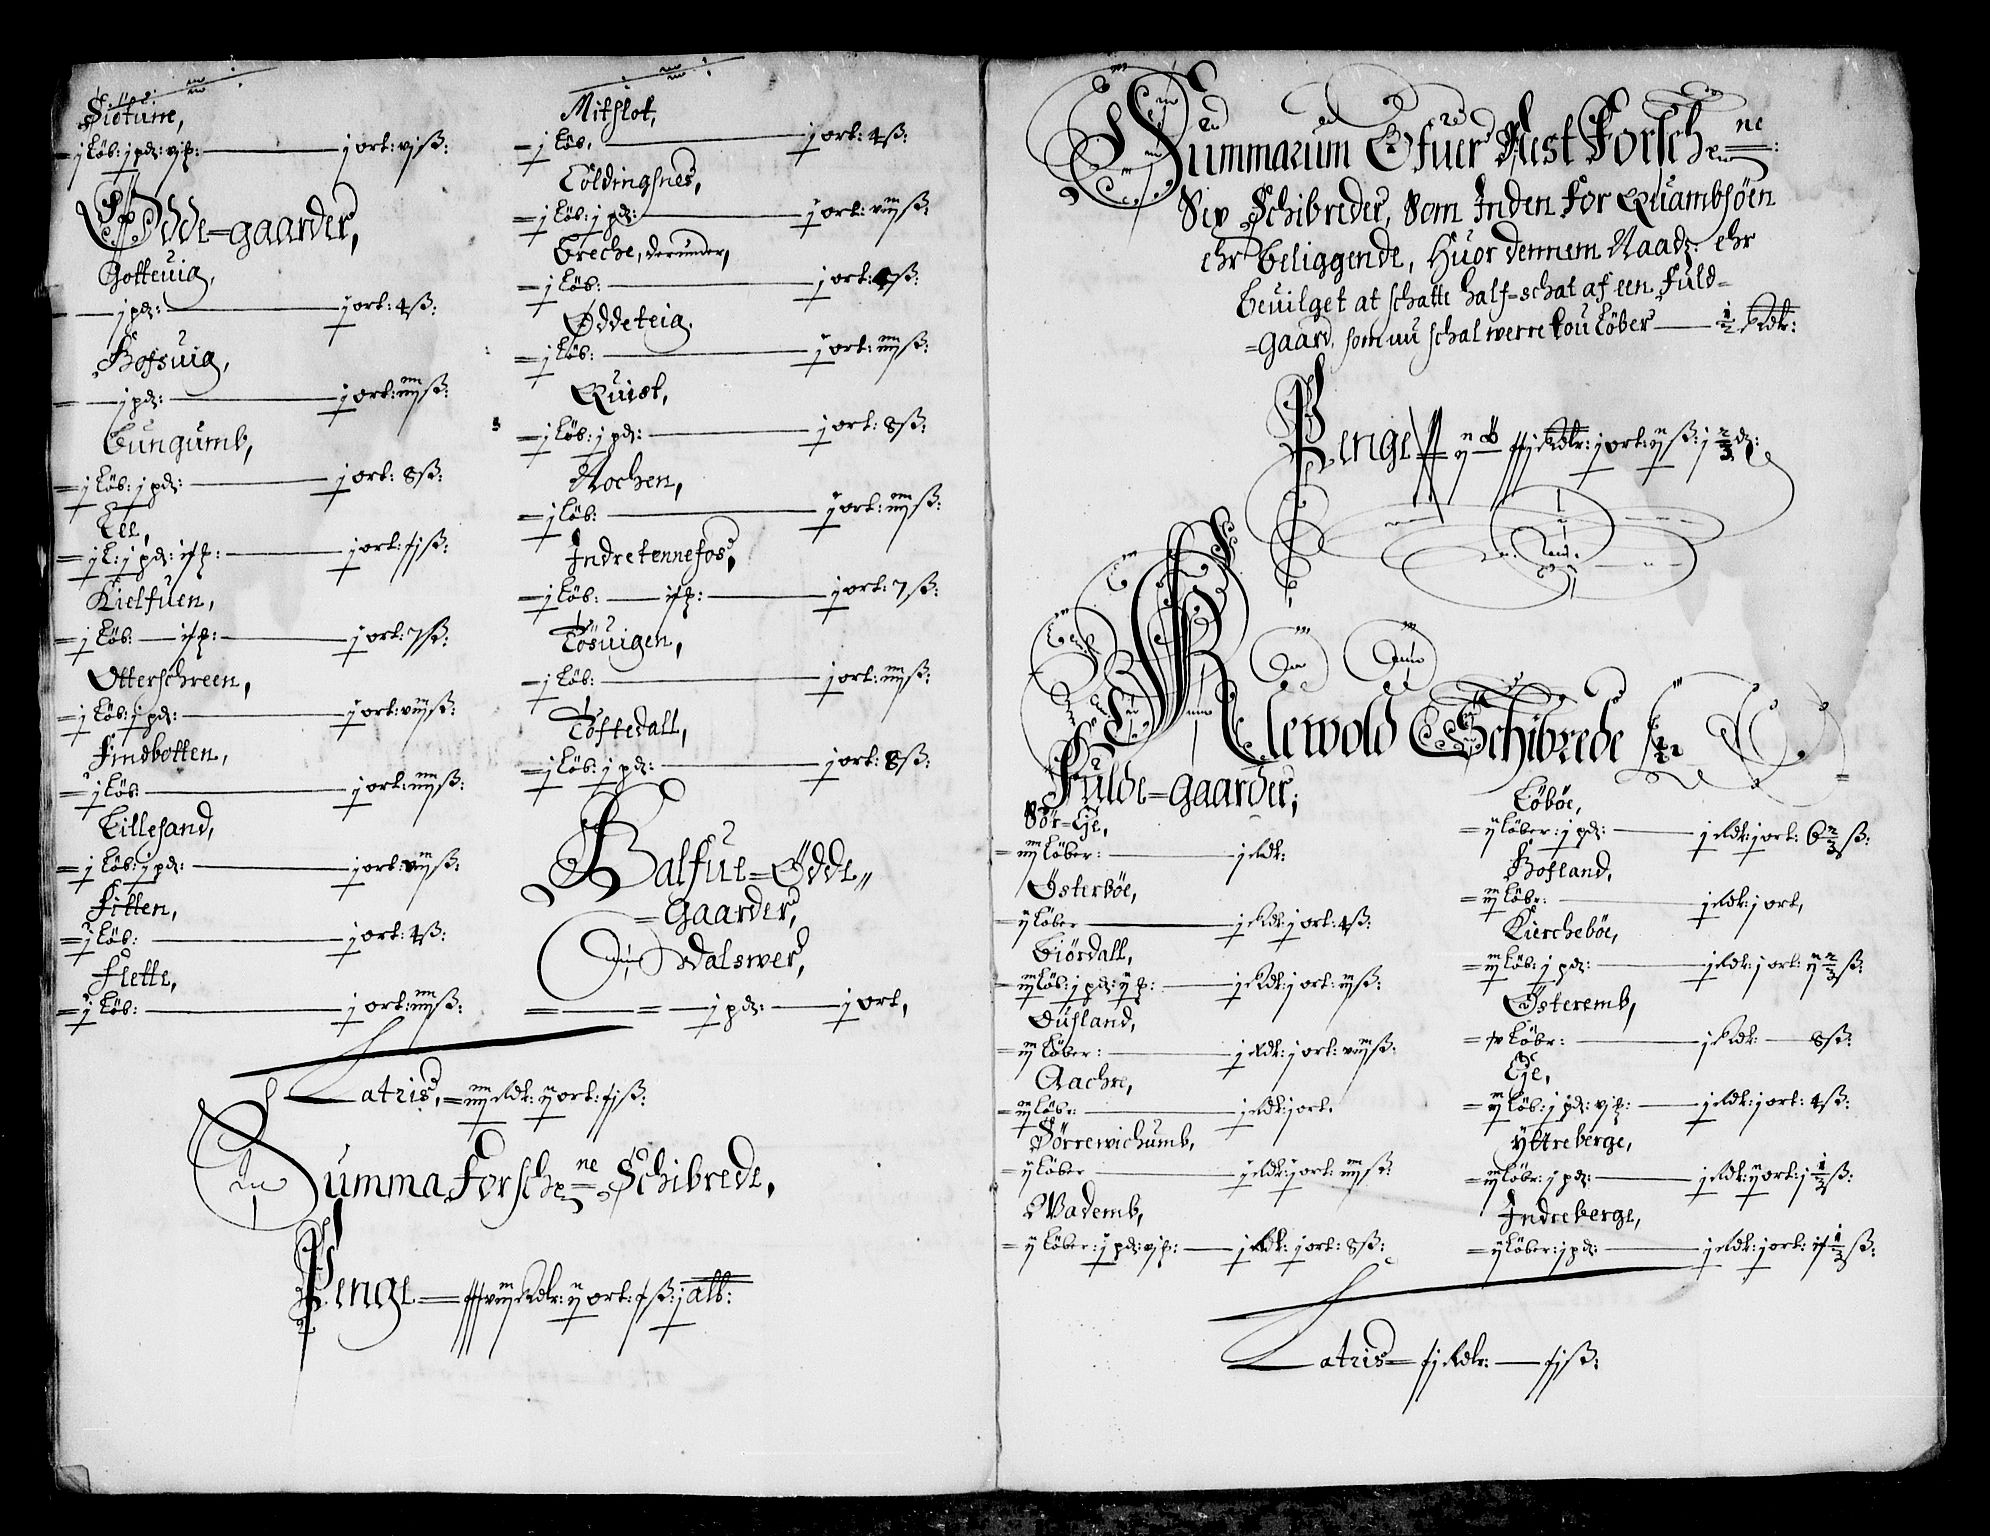 Siötune,
j løb: j pd: vj ℔: j ort: vj ß:
Ödde-gaarder,
Gottevig,
j pd: j ort: 4 ß:
Hofsvig,
j pd: j ort: iiij ß:
Bungumb,
j løb: j pd: j ort: 8 ß:
Lee,
j l: j pd: j ort: xj ß:
Kielfuen,
j løb: j ort: 7 ß:
Otterschreen,
j løb: j pd: j ort: viij ß:
Findbotten,
j løb: j ort: iiij ß:
Lillesand,
j løb: j pd: j ort: viij ß:
Fitten,
j løb: j ort: 4 ß:
Flette,
ij løb: j ort: iiij ß:
Mitslot,
j løb. j ort: 4 ß:
Coldingsnes,
j løb: j pd: j ort: viij ß:
Breche, derunder,
j løb: j ort:
Øddeteig.
j løb: j ort: iiij ß:
Quist,
j løb: j pd: j ort: 8 ß:
Nochen,
j løb: ij ort: iiij ß:
Indretennefos,
j løb: j ort: 7 ß:
Tösvigen,
j løb: j ort: iiij ß:
Toftedall,
j løb: j pd: j ort: 8 ß:
Halfue-Ödde
-Gaarder,
Dalswer,
j pd: j ort,
Lateris, iiij Rdr: ij ort: xj ß:
Summa Forschne Schibrede,
Penge xxxviij Rdr: ij ort: x ß: j alb:
Summarum Ofuer Nest Forschne:
Sex Schibreder, Som Inden For Quambsöen
ehr beliggende, Huor dennem Naadt: ehr
beuilget at schatte half-schat af een Fuld-
-gaard, som nu schal werre tou Löber ½ Rdr:
Penge ij xxj Rdr: j ort: ij ß: j ⅔ d:
Alewold Schibrede
Fulde-gaarder;
Sör-Eje,
iiij löber: j Rdr:
Österböe,
ij löber j Rdr: j ort: 4 ß:
Giördall,
iij löb: j pd: ij ℔: j Rdr: j ort: iij ß:
Dusland,
iij löber: j Rdr: j ort: viij ß:
Aachre,
iij löbr: j Rdr: j ort.
Sörrewichumb,
ij löber j Rdr: j ort: iiij ß:
Wademb,
ij löber: j pd: vj ℔: j Rdr: j ort: 8 ß:
Löböe,
ij löber: j pd: j Rdr: j ort: 6⅔ ß:
Hofland,
iij löbr: j Rdr: j ort,
Kiercheböe,
iij löb: j pd: j Rdr: j ort: ij⅔ ß:
Österemb,
löbr: j Rdr: 8 ß:
Eje,
iij löb: j pd: vj ℔: j Rdr: j ort: 4 ß:
Yttreberge,
iij löbr: j pd: j Rdr: ij ort: j⅓ ß:
Indreberge,
ij löber: j pd: j Rdr: j ort: ß:
Lateris xj Rdr: xj ß: